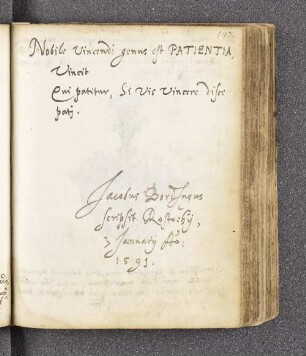 147.
Nobile vincendj genus est PATIENTIA,
Vincit
Qui patitur, Si Vis Vincere disce
patj.
Jacobus
scripsit Rostochij,
Januarij Ao:
1591.